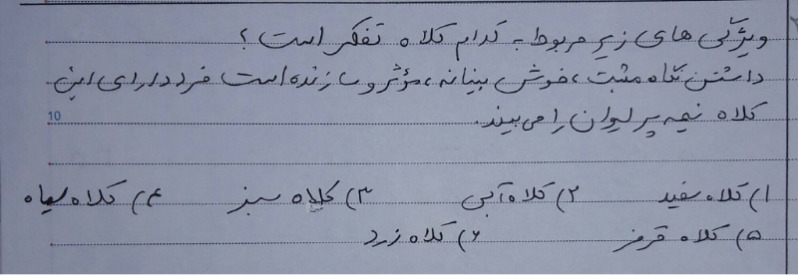 ویژگی های زیر مربوط به کدام کلاه تفکر است؟
داشتن نگاه مثبت، خوش بینانه، مؤثر و سازنده است فرد دارای این
کلاه نیمه پر لیوان را می بیند.
10
۱) کلاه سفید ۲) کلاه آبی ۳) کلاه سبز ۴) کلاه سیاه
۵) کلاه قرمز ۶) کلاه زرد